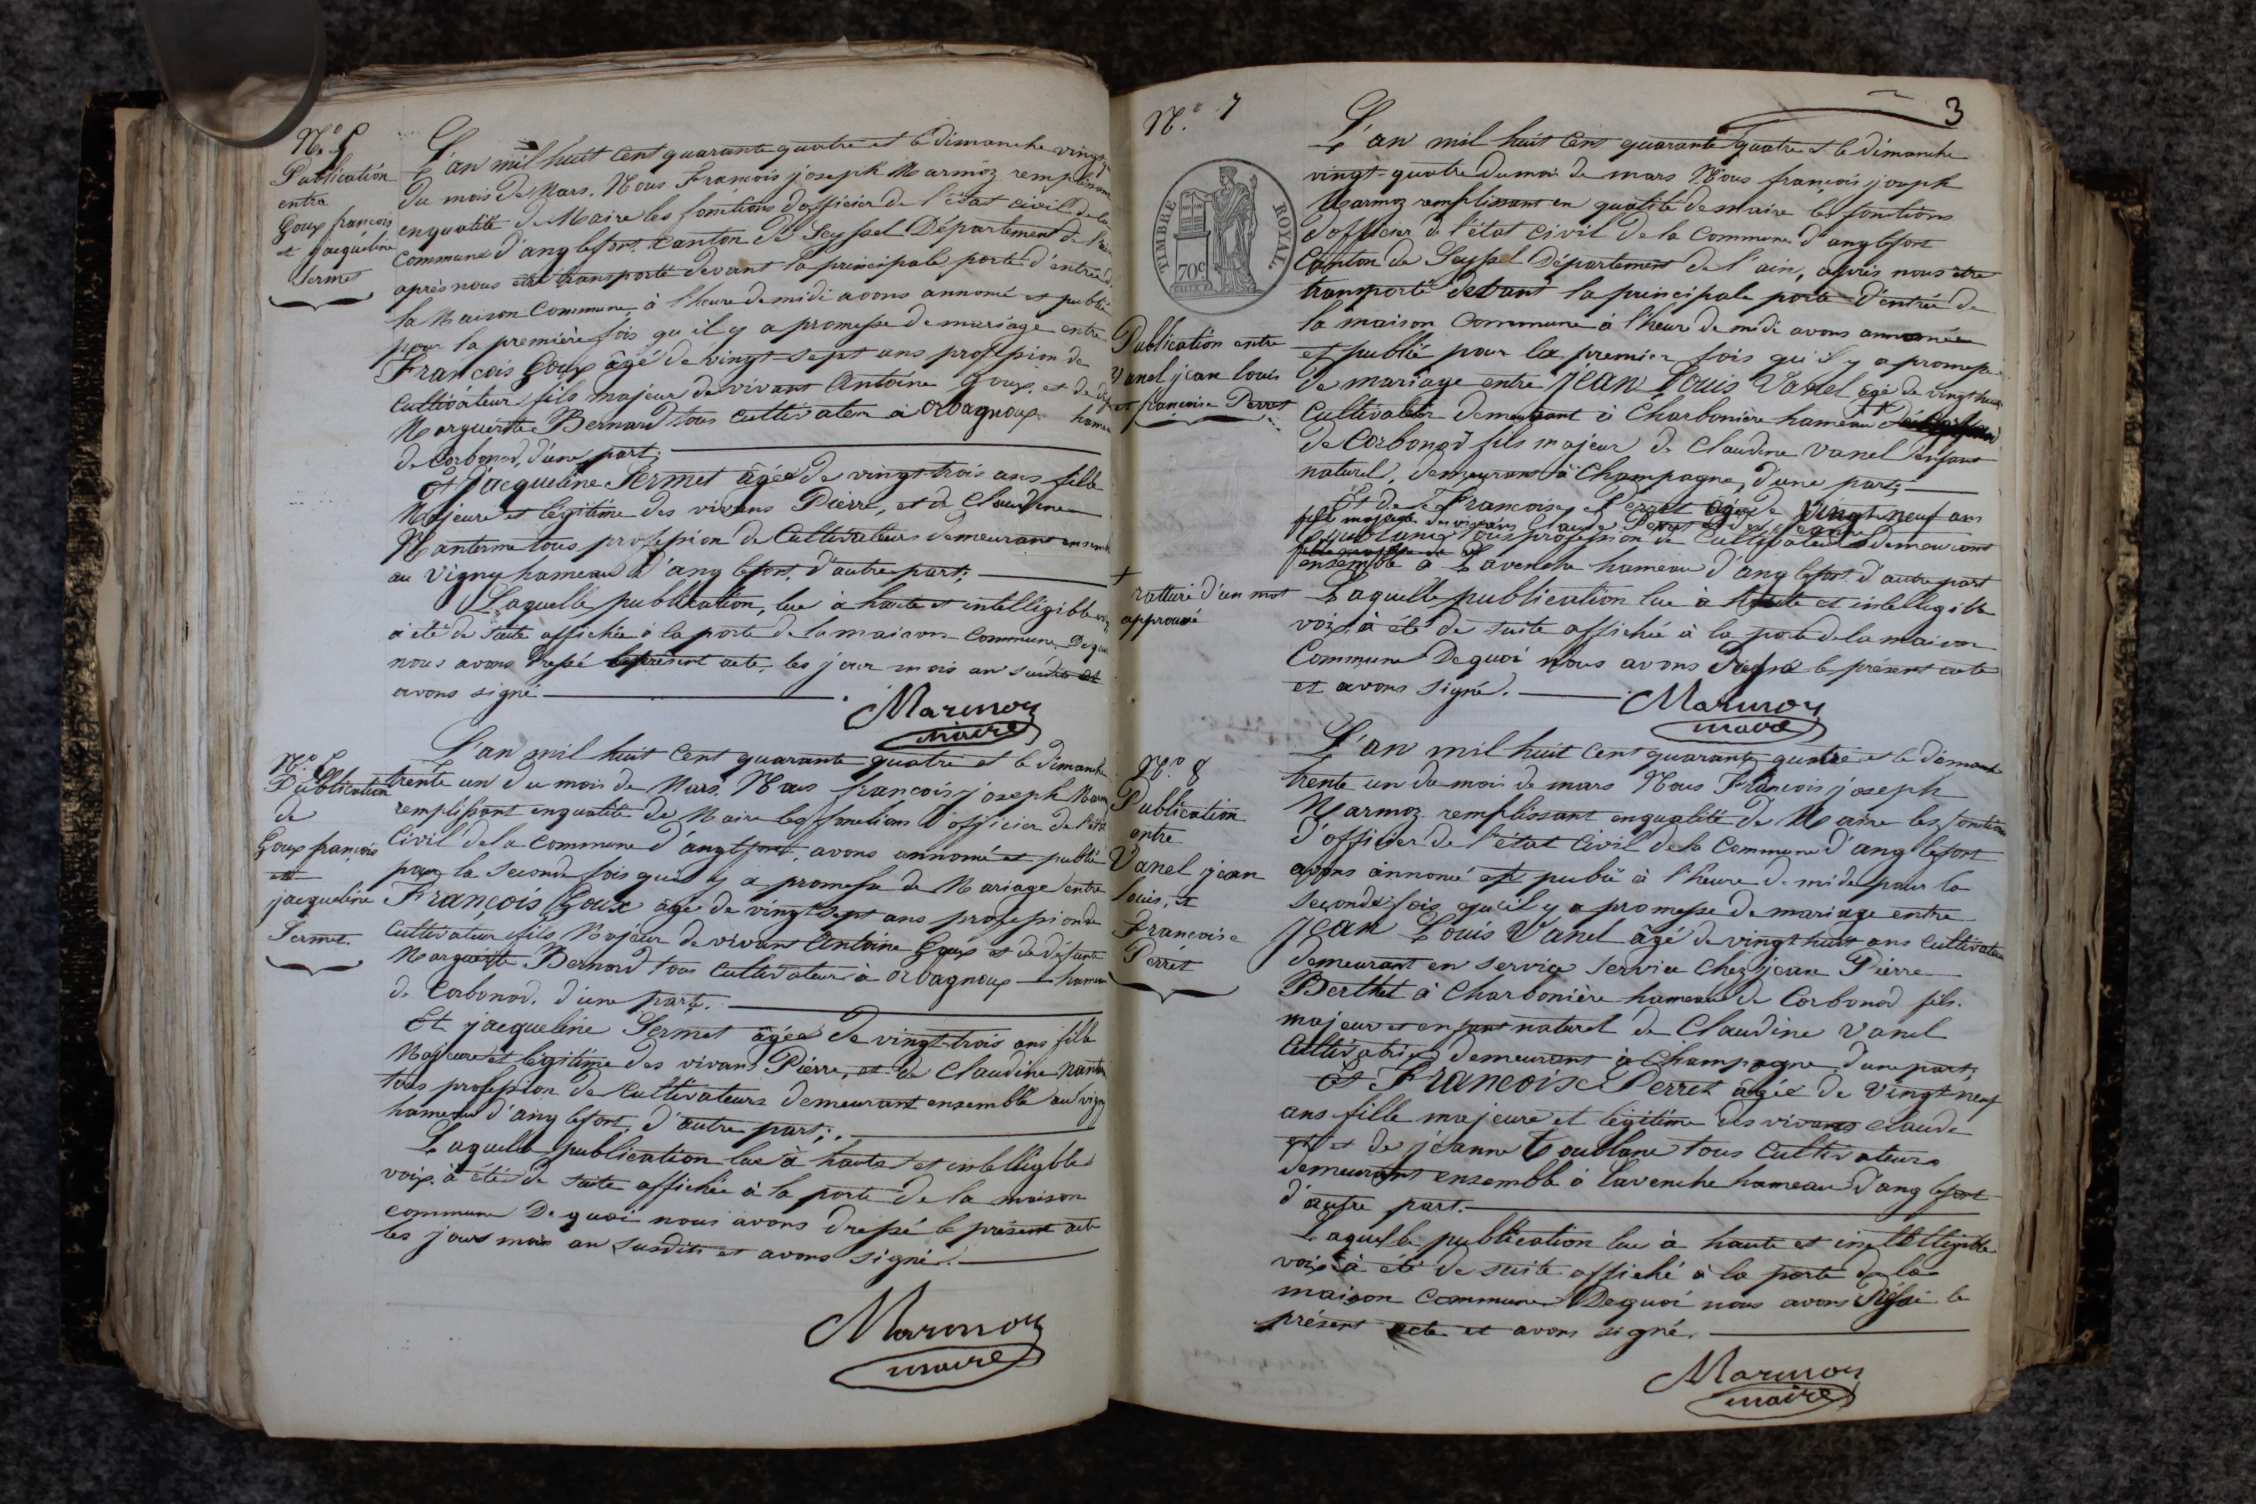 N.o 5
Publication
entre
Goux françois
et jacqueline
Sermet
L'an mil huit cent quarante quatre et le dimanche
du mois de Mars. Nous François joseph Marmoz remplissant
enqualité de Maire les fonctions d'officier de l'état civil de la
commune d'anglefort, canton de Seyssel Département de l'ain
après nous etre transporté devant la principale porte d'entrée de
la Maison Commune, à l'heure de midi avons annoncé et publié
pour la première fois qu'il y a promesse de mariage entre
François Goux âgé de vingt sept ans profession de
Cultivateur fils majeur de vivant Antoine Goux, et de
Marguerite Bernard tous cultivateur à Orbagnoux hameau
de Corbonod, d'une part;
Et Jacqueline Sermet âgée de vingt trois ans fille
Majeure et légitime des vivans Pierre, et de Claudine
Nanterme tous profession de Cultivateurs demeurant ensemble
au Vigny hameau d'anglefort, d'autre part;
Laquelle publication, lue à haute et intelligible
à été de suite affichée à la porte de la maison Commune, De quoi
nous avons dressé le présent acte, les jour mois an susdits et
avons signé
Marmoz
maire
N.o 6
Publication
de
Goux françois
et
jacqueline
Sermet.
L'an mil huit cent quarante quatre et le dimanche
trente un du mois de Mars, Nous françois joseph
remplissant enqualité de Maire les fonctions d'officier de l'état
Civil de la commune d'anglefort, avons annoncé et publié
pour la seconde fois qu'il y a promesse de Mariage entre
François Goux âgé de vingt sept ans profession de
Cultivateur fils Majeur de vivant Antoine Goux et de défunte
Marguerite Bernard tous cultivateur à Orbagnoux hameau
de Corbonod, d'une part;
Et jacqueline Sermet âgée de vingt trois ans fille
Majeure et légitime des vivans Pierre, et de Claudine
tous profession de cultivateurs demeurant ensemble au vigny
hameau d'anglefort, d'autre part;
Laquelle publication lue à haute et intelligible
voix, à été de suite affichée à la porte de la maison
commune De quoi nous avons dressé le présent acte
les jours mois an susdits et avons signé.
Marmoz
maire
3
N.o 7
TIMBRE ROYAL.
70c
Publication entre
Vanel jean louis
et francoise Perret
L'an mil huit cent quarante quatre et le dimanche
vingt-quatre du moi de mars Nous françois joseph
Marmoz remplissant en qualité de maire les fonctions
d'officier de l'état civil de la commune d'anglefort
Canton de Seyssel Département de l'ain, après nous être
transporté devant la principale porte d'entrée de
la maison commune à l'heure de midi avons annoncée
et publié pour la premier fois qu'il y a promesse
de mariage entre Jean Louis Vanel âgé de vingt huit
cultivateur demeurant à Charbonière hameau
de Corbonod fils majeur de Claudine Vanel enfant
naturel, demeurant à Champagne, d'une part;
Et de Francoise Perret âgée de vingt neuf ans
fille majeure des vivans Claude Perret et de jeanne
tous profession de Cultivateurs demeurant
ensemble à Lavenche hameau d'anglefort d'autre part
+
ratturé d'un mot
approuvé
Laquelle publication lue à haute et intelligible
voix, à été de suite affichée à la porte de la maison
Commune De quoi nous avons dressé le présent acte
et avons signé.
Marmoz
maire
N.o 8
Publication
entre
Vanel jean
louis, et
Françoise
Perret
L'an mil huit cent quarante quatre et le dimanche
trente un du mois de mars Nous François joseph
Marmoz remplissant enqualité de Maire les fonctions
d'officier de l'état Civil de la Commune d'anglefort
avons annoncé et publié à l'heure de midi pour la
seconde fois qu'il y a promesse de mariage entre
Jean Louis Vanel âgé de vingt huit ans cultivateur
demeurant en service service chez jean Pierre
Berthet à Charbonière hameau de Corbonod fils.
majeur et enfant naturel de Claudine Vanel
Cultivatrice demeurant à Champagne d'une part;
Et Francoise Perret âgée de Vingt neuf
ans fille majeure et légitime des vivans Claude
et de jeanne Coublanc tous Cultivateurs
demeurant ensemble à Lavenche hameau d'anglefort
d'autre part.
Laquelle publication lue à haute et intelligible
voix à été de suite affiché à la porte de la
maison Commune De quoi nous avons dressé le
présent acte et avons signé.
Marmoz
maire